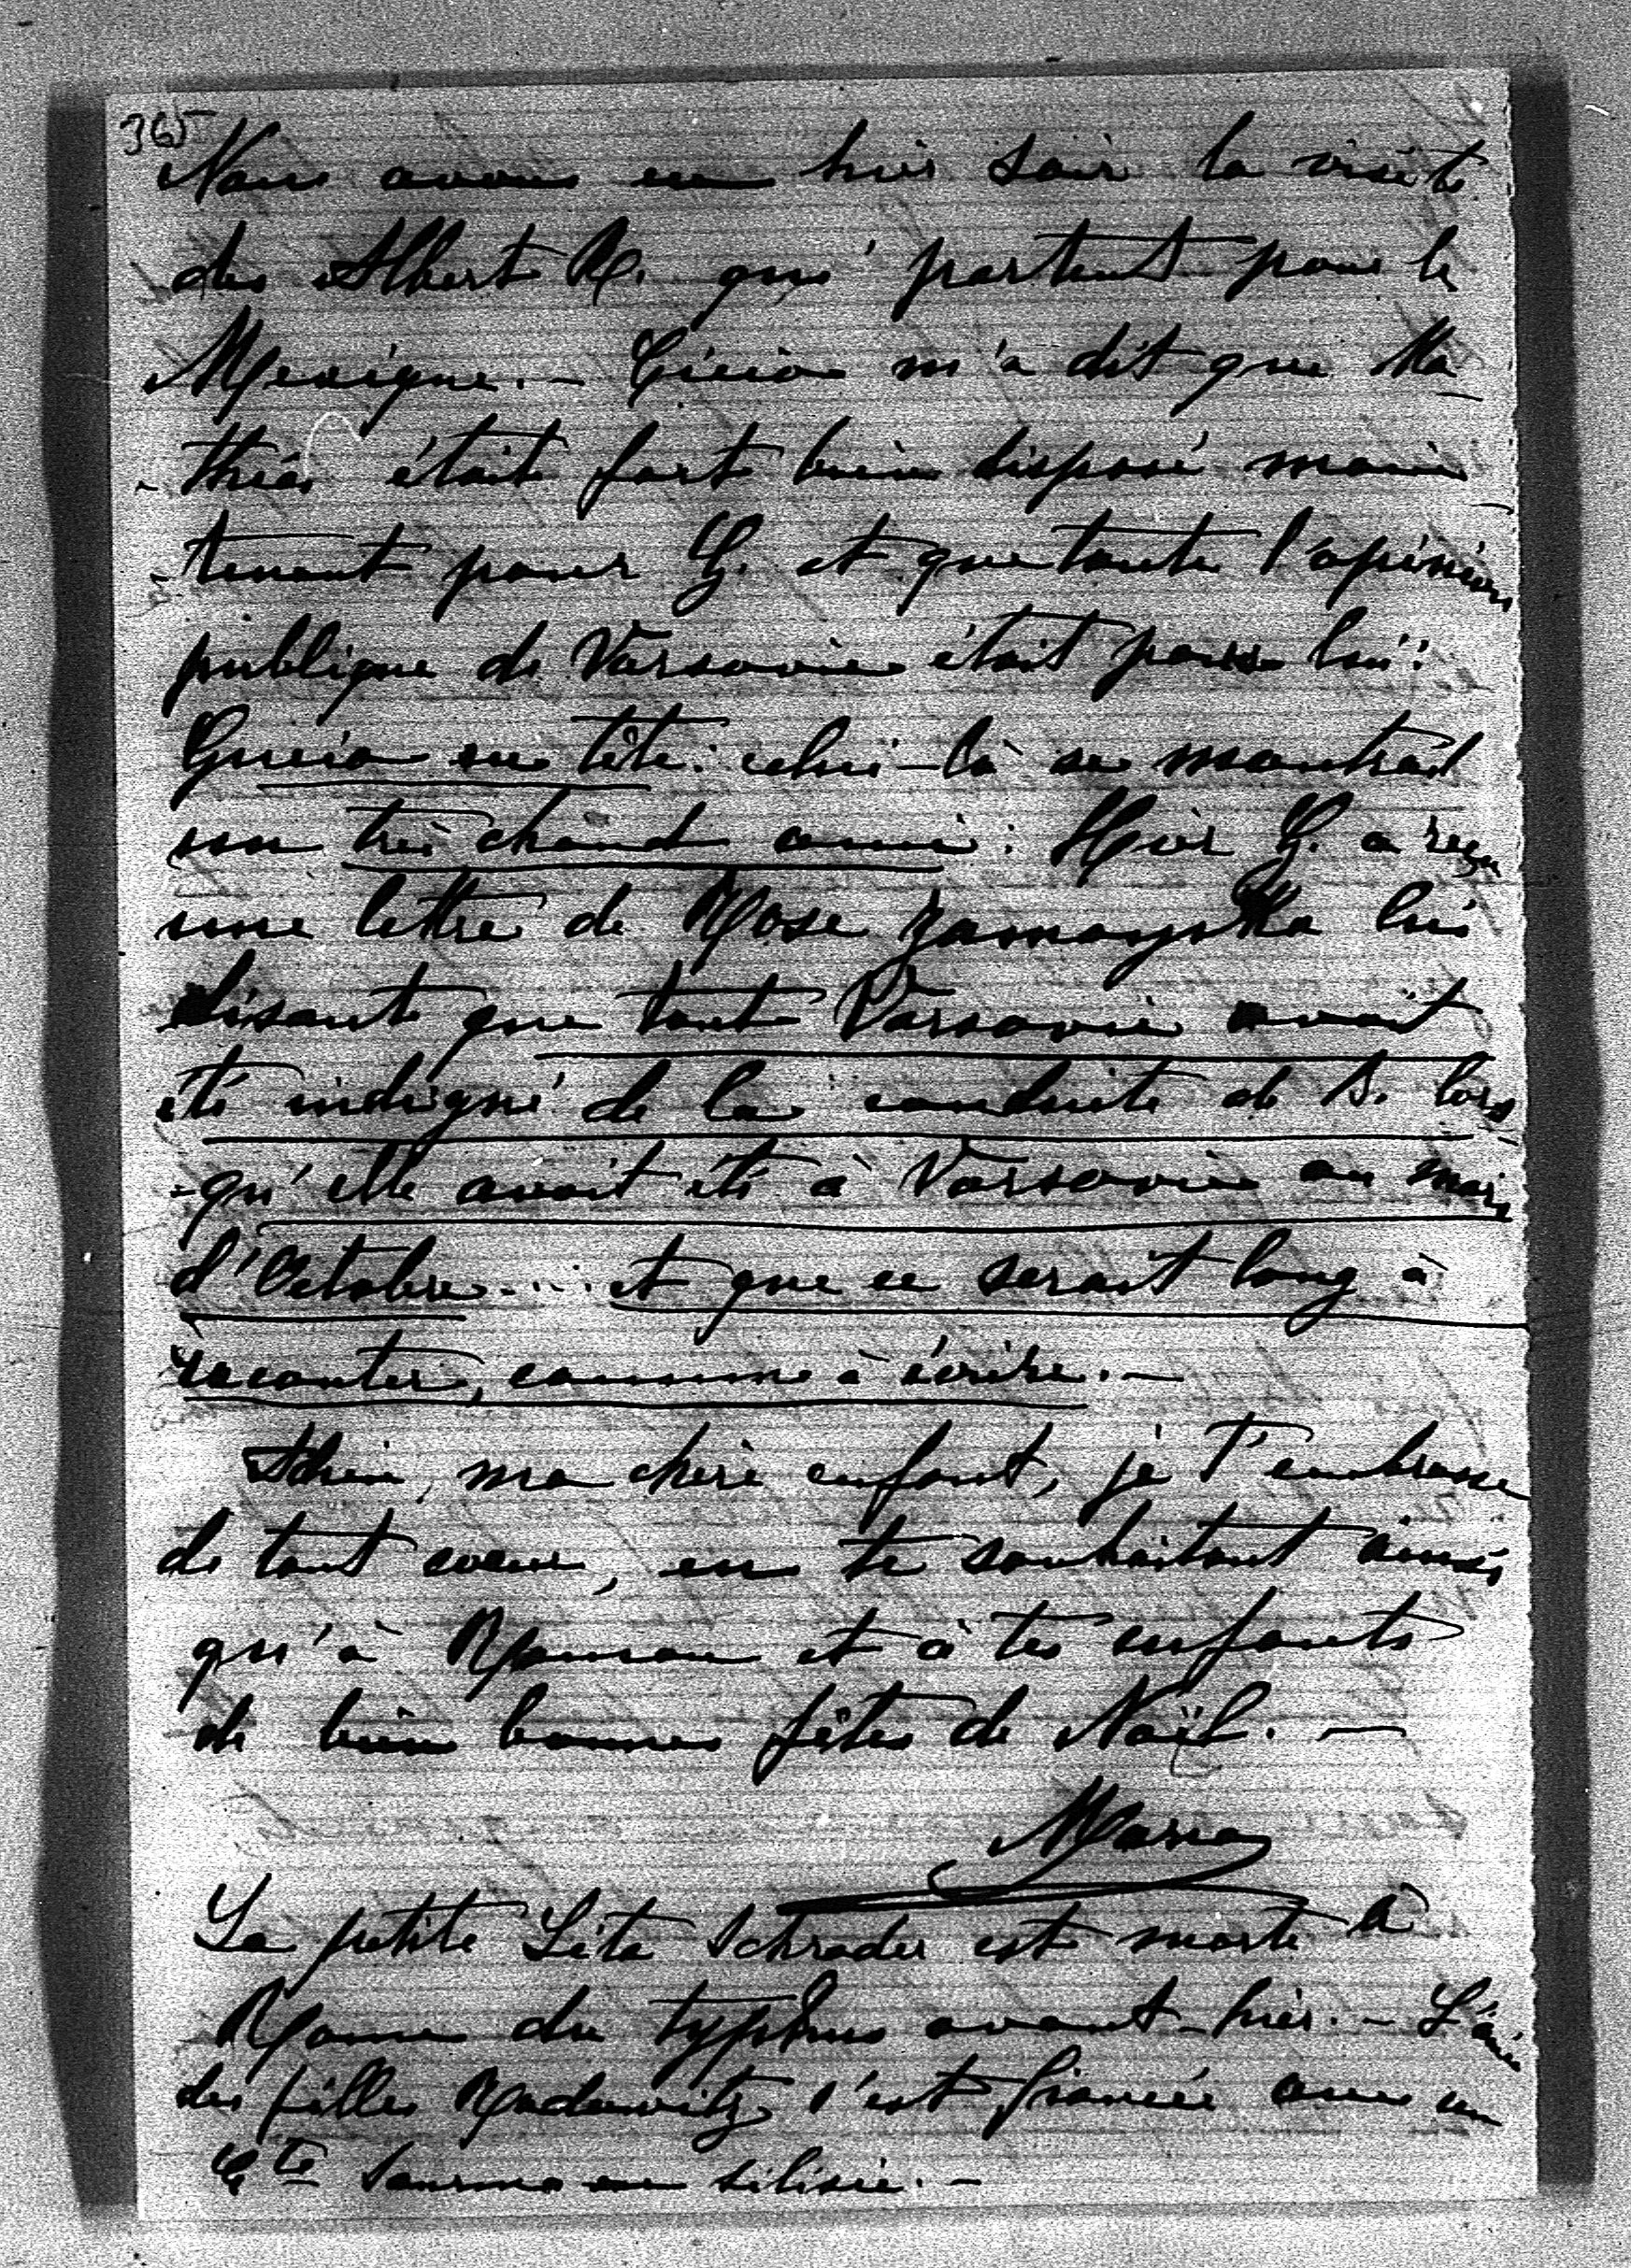 365
Nous avons eu hier soir la visite
des Albert R. qui partent pour le
Mexique. - m'a dit que Ma
- thias était fort bien disposé main
- tenant pour G. et que toute l'opinion
publique de Varsovie était pour lui!
en tête: celui-là se montrait
son très chaud ami: Hier G. a reçu
une lettre de Rose Zamoyska lui
disant que toute Varsovie avait
été indigné de la conduite de S. lors
- qu'elle avait été à Varsovie au mois
d'Octobre.... et que ce serait long à
raconter, comme à écrire. -
Adieu, ma chère enfant, je t'embrasse
de tout coeur, en te souhaitant ainsi
qu'à Roman et à tes enfants
de bien bonnes fêtes de Noël. -
La petite Léta Schrader est morte à
Rome du typhus avant-hier. - L'ainée
des filles Radowitz s'est fiancée avec un
Cte Saurma en silésie. -